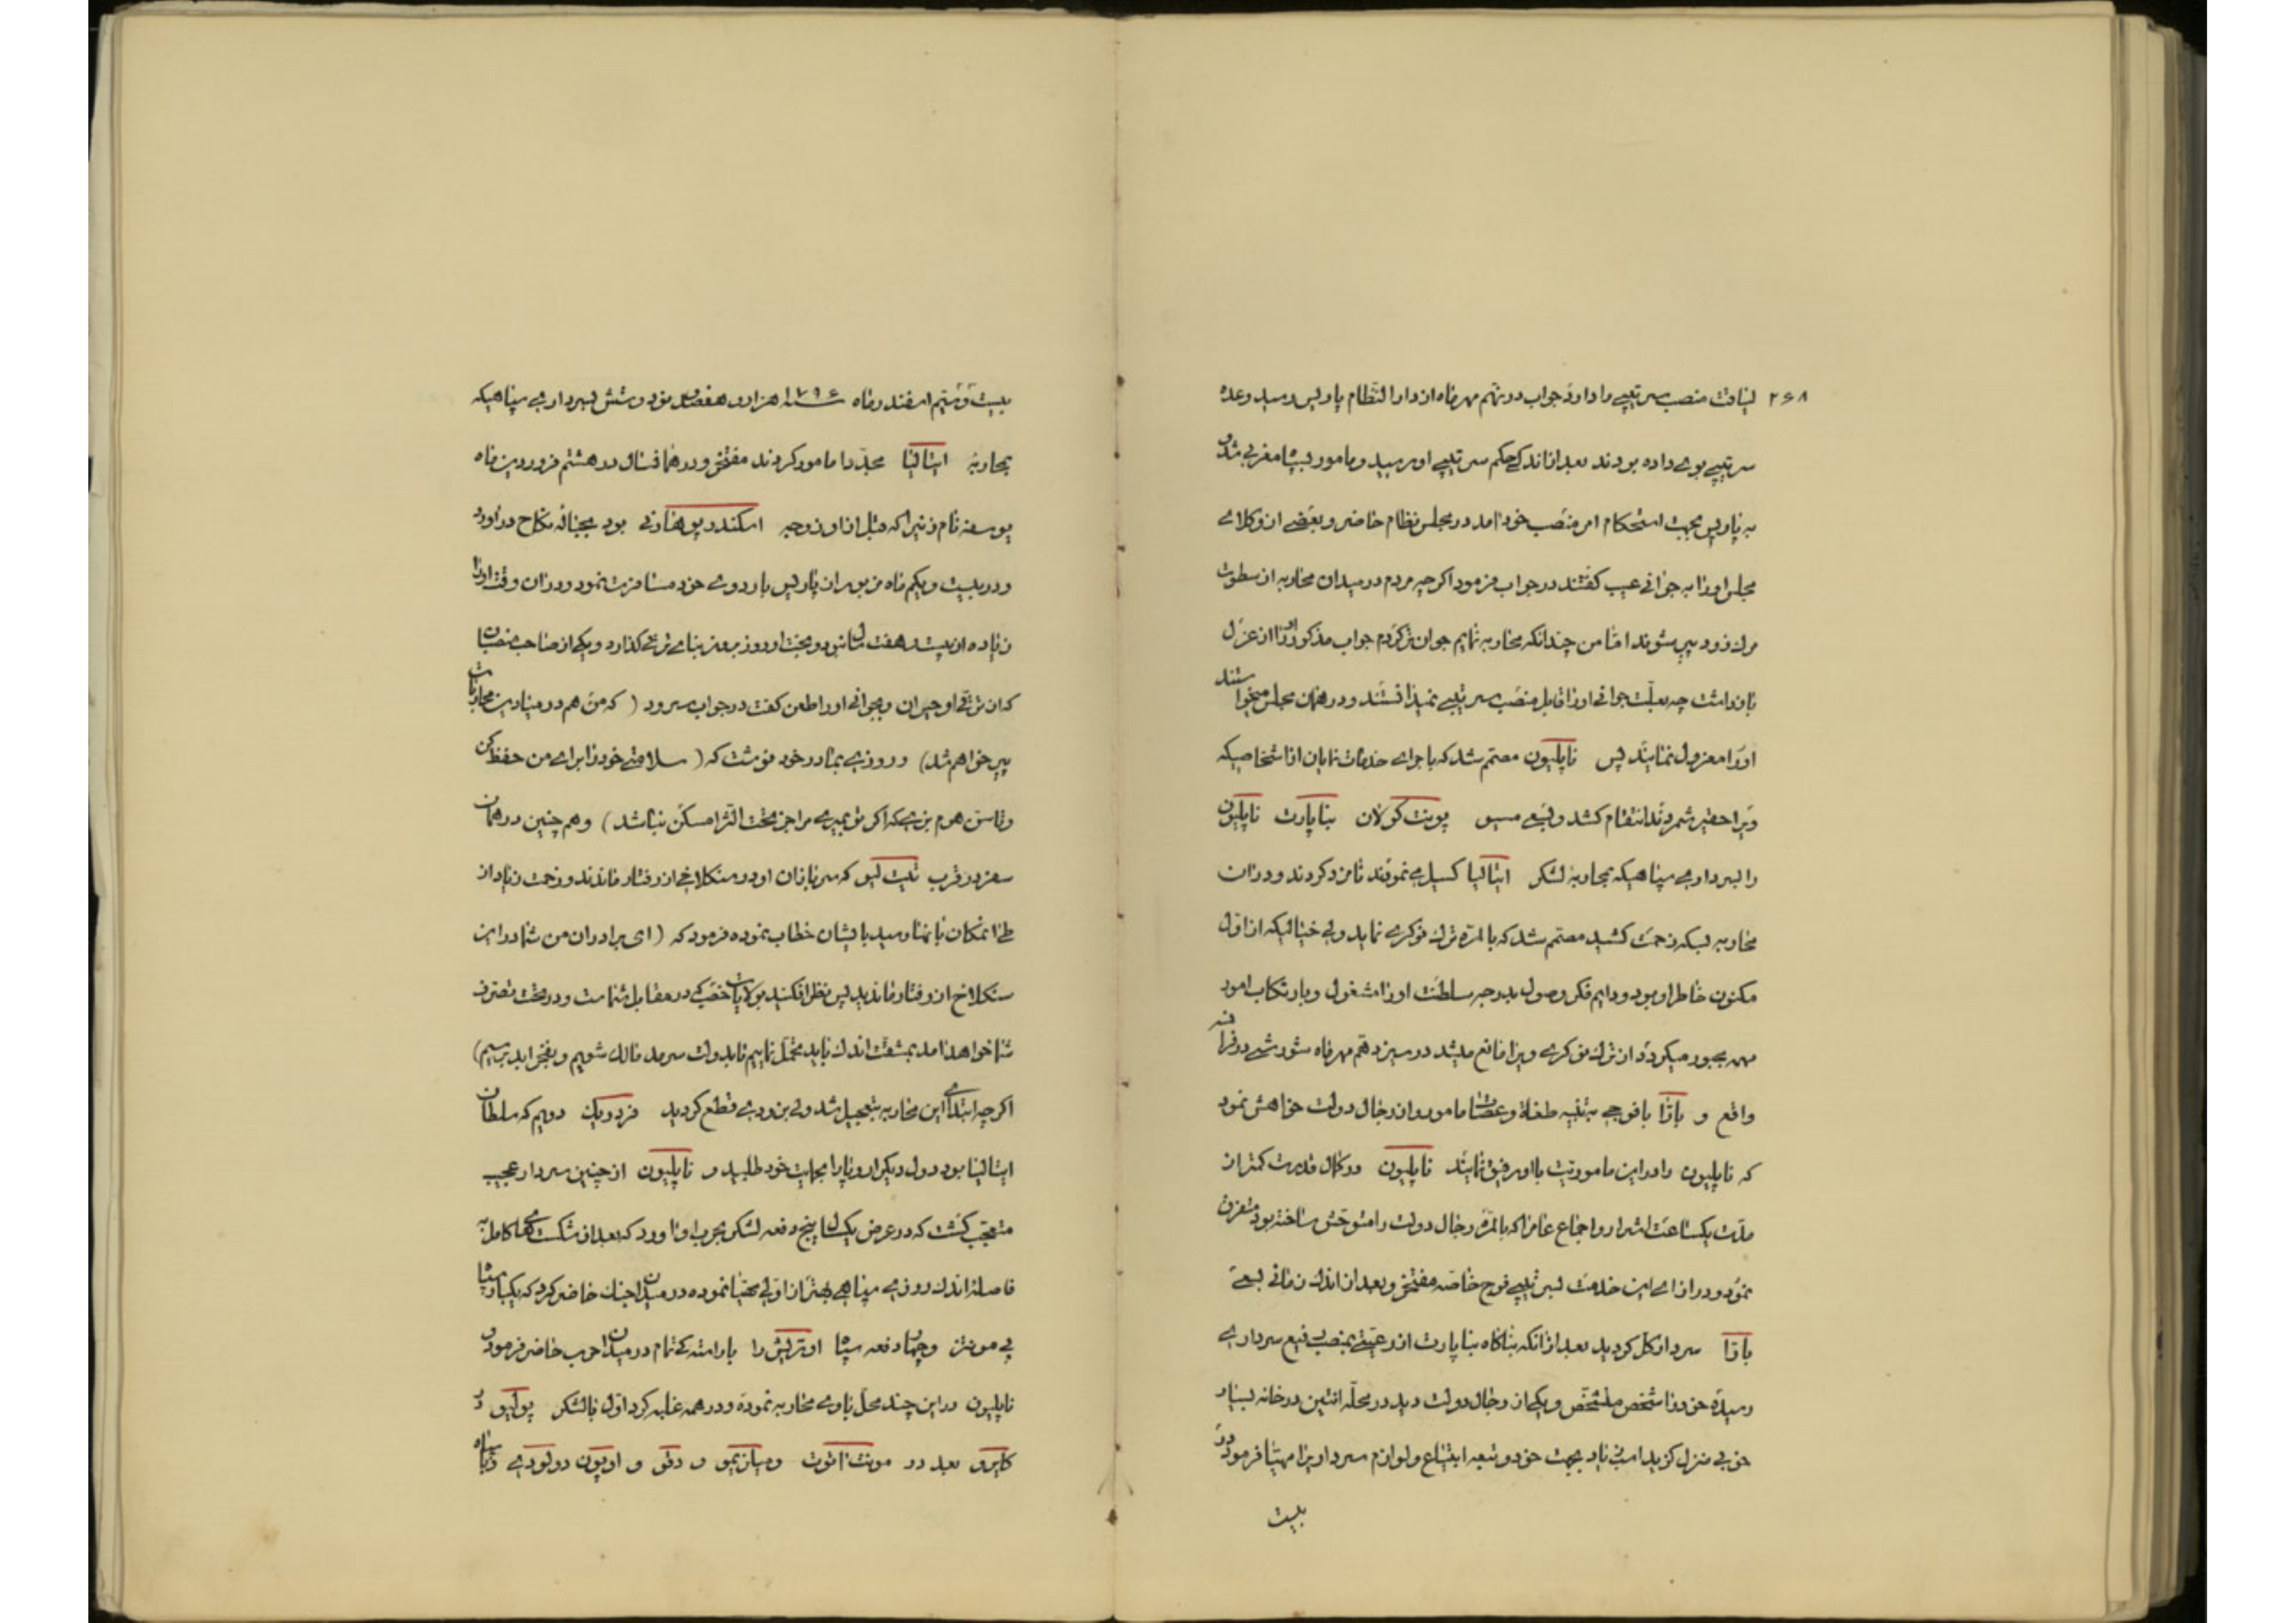 ۲۶۸ لیاقت منصب سرتیپی را دارد جواب در نهم مهرماه از دارالنظام پاریس رسید وعده
سرتیپی بوی داده بودند بعد از اندکی حکم سرتیپی او رسید و مامور بسپاه مغربی شد و
به پاریس بجهت استحکام امر منصب خود آمد در مجلس نظام حاضر و بعضی از وکلای
مجلس او را به جوانی عیب گفتند در جواب فرمود اگرچه مردم در میدان محاربه از سطوت
مرک زود پیر شوند اما من چندانکه محاربه نمایم جوان تر کردم جواب مذکور او را از عزل
باز داشت چه بعلت جوانی او را قابل منصب سرتیپی نمیدانستند و در همان مجلس میخواستند
او را معزول نمایند پس ناپلیون مصمم شد که باجرای خدمات نمایان از اشخاصیکه
ویرا حقیر شمردند انتقام کشد و بسعی مسیو پونت کولان بناپارت ناپلیون
را بسرداری سپاهیکه بمحاربه لشکر ایتالیا کسیل می نمودند نامزد کردند و در آن
محاربه بسیکه زحمت کشید مصمم شد که بالمره ترک نوکری نماید ولی خیالیکه از اول
مکنون خاطر او بود و دایم فکر وصول بدرجه سلطنت او را مشغول و بارتکاب امور
مهمه مجبور میکرد از ترک نوکری ویرا مانع میشد در سیزدهم مهرماه شورشی در فرانسه
واقع و باراا با فوجی به تنبیه طغاة و عصات مامور و از رجال دولت خواهش نمود
که ناپلیون را در این ماموریت با او رفیق نمایند ناپلیون در کمال قدرت کمتر از
مدت یکساعت اشرار و اجماع عام را که بالمره رجال دولت را متوحش ساخته بود متفرق
نمود و در ازای این خدمت بسرتیپی فوج خاصه مفتخر و بعد از اندک زمانی بسعی
باراا سردار کل کردید بعد از آنکه بناگاه بناپارت از رعیتی بمنصب رفیع سرداری
رسید خود را شخص مشخص و یکی از رجال دولت دید در محله انتین در خانه بسیار
خوبی منزل کزید اسب زیاد بجهت خود و تبعه ابتیاع و لوازم سرداریرا مهیا فرمود در
بیست
بیست و ششم اسفندرماه ۱۷۹۶ سنه هزار و هفتصد و نود و شش بسرداری سپاهیکه
بمحاربه ایتالیا مجددا مامور کردند مفتخر و در همانسال در هشتم فروردین ماه
یوسفنه نام زنیرا که قبل از او زوجه اسکندر بوهارنی بود بحباله نکاح درآورد
و در بیست و یکم ماه مزبور از پاریس باردوی خود مسافرت نمود در آن وقت او را
زیاده از بیست و هفت سال نبود و بخت او روز بروز بنای ترقی گذارد و یکی از صاحب منصبان
که از ترقی او حیران و بجوانی او را طعن گفت در جواب سرود ( که من هم در میادین محاربات
پیر خواهم شد) و روزی بمادر خود نوشت که ( سلامتی خود را برای من حفظ کن
و تا من هم بزی که اگر تو بمیری مرا جز تحت الثرا مسکن نباشد) و هم چنین در همان
سفر در قرب که سربازان او در سنکلاخی از رفتار ماندند و زحمت زیاد از
طی امکان بانها رسید بایشان خطاب نموده فرمود که (ای برادران من شما در این
سنکلاخ از رفتار ماندید پس نظر افکنید بولایات خصب که در مقابل شماست و در تحت تصرف
شما خواهد آمد بمشقت اندک باید متحمل باشیم تا بدولت سرمد مالک شویم و بفخر ابد برسیم)
اگرچه ابتدای این محاربه بتعجیل شد ولی بزودی قطع گردید فردریک دویم که سلطان
ایتالیا بود دول دیگر اروپا را بحمایت خود طلبید و ناپلیون از چنین سردار عجیب
متعجب گشت که در عرض یکسال پنج دفعه لشکر بحرب او آورد که بعد از شکستهای کامل به
فاصله اندک روزی سپاهی بهتر از اولی مهیا نموده در میدان جنک حاضر کرد که یکبار سپاه
پی مونتز و چهار دفعه سپاه اوتریش را بآراستگی تمام در میدان حرب حاضر فرمود و
ناپلیون در این چند محل باوی محاربه نموده و در همه غلبه کرد اول بالشکر پولیو
کایرو بعد در مونت انوت و میلازیمو و دقو و اوپون دولودی و با سپاه